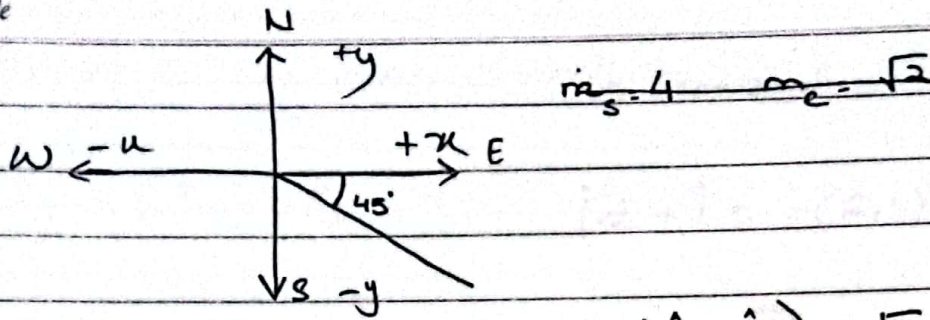 N
+y
m_s = 4 m_e = √2
W -x +x E
45°
S -y